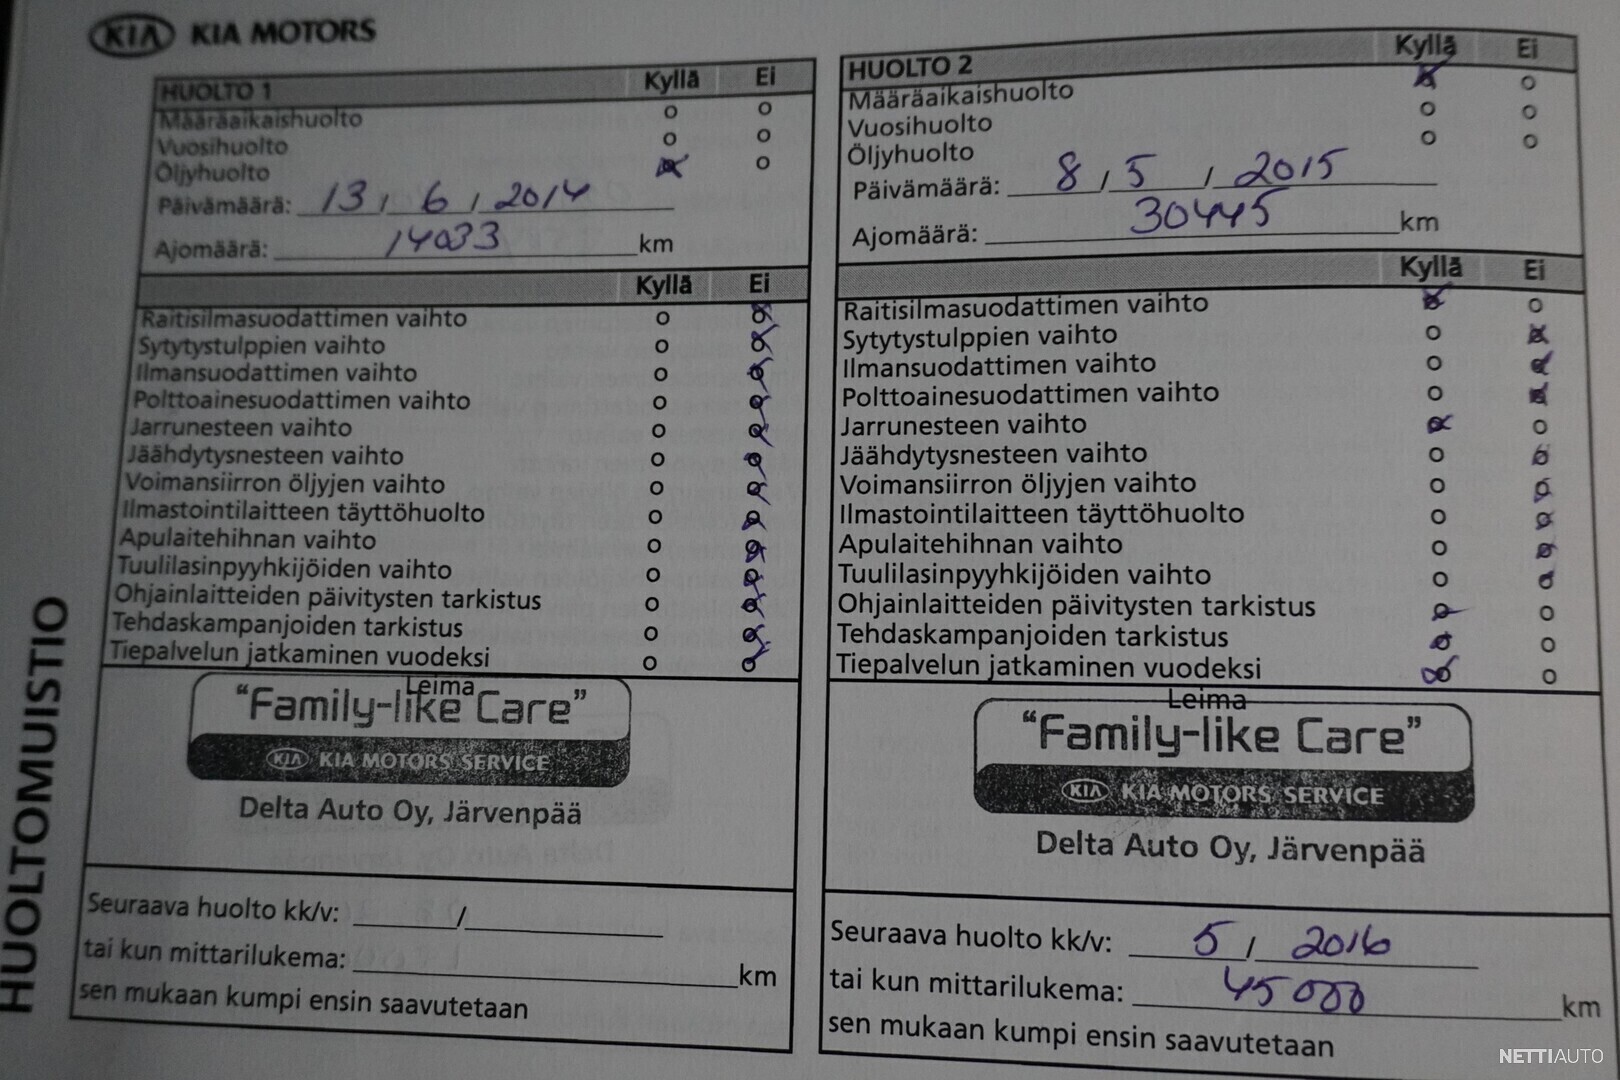 KIA KIA MOTORS
HUOLTOMUISTIO
HUOLTO 1 Kyllä Ei
Määräaikaishuolto o o
Vuosihuolto o o
Öljyhuolto x o
Päivämäärä: 13 / 6 / 2014
Ajomäärä: 14033 km
Kyllä Ei
Raitisilmasuodattimen vaihto o x
Sytytystulppien vaihto o x
Ilmansuodattimen vaihto o x
Polttoainesuodattimen vaihto o x
Jarrunesteen vaihto o x
Jäähdytysnesteen vaihto o x
Voimansiirron öljyjen vaihto o x
Ilmastointilaitteen täyttöhuolto o x
Apulaitehihnan vaihto o x
Tuulilasinpyyhkijöiden vaihto o x
Ohjainlaitteiden päivitysten tarkistus o x
Tehdaskampanjoiden tarkistus o x
Tiepalvelun jatkaminen vuodeksi o x
Leima
"Family-like Care"
KIA KIA MOTORS SERVICE
Delta Auto Oy, Järvenpää
Seuraava huolto kk/v: /
tai kun mittarilukema: km
sen mukaan kumpi ensin saavutetaan
HUOLTO 2 Kyllä Ei
Määräaikaishuolto x o
Vuosihuolto o o
Öljyhuolto o o
Päivämäärä: 8 / 5 / 2015
Ajomäärä: 30445 km
Kyllä Ei
Raitisilmasuodattimen vaihto x o
Sytytystulppien vaihto o x
Ilmansuodattimen vaihto o x
Polttoainesuodattimen vaihto o x
Jarrunesteen vaihto x o
Jäähdytysnesteen vaihto o x
Voimansiirron öljyjen vaihto o x
Ilmastointilaitteen täyttöhuolto o x
Apulaitehihnan vaihto o x
Tuulilasinpyyhkijöiden vaihto o x
Ohjainlaitteiden päivitysten tarkistus x o
Tehdaskampanjoiden tarkistus x o
Tiepalvelun jatkaminen vuodeksi x o
Leima
"Family-like Care"
KIA KIA MOTORS SERVICE
Delta Auto Oy, Järvenpää
Seuraava huolto kk/v: 5 / 2016
tai kun mittarilukema: 45000 km
sen mukaan kumpi ensin saavutetaan
NETTIAUTO